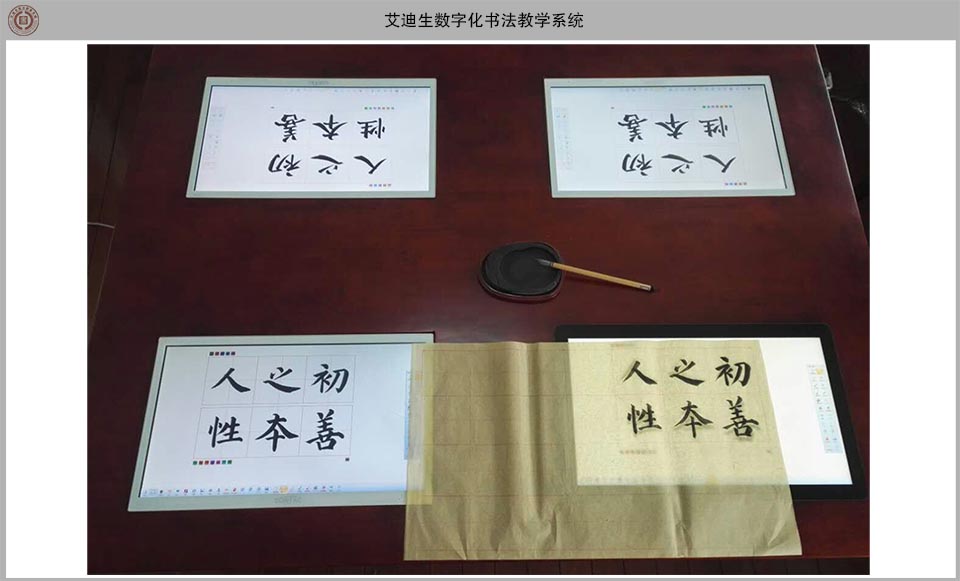 艾迪生数字化书法教学系统
人之初
性本善
人之初
性本善
人之初
性本善
人之初
性本善